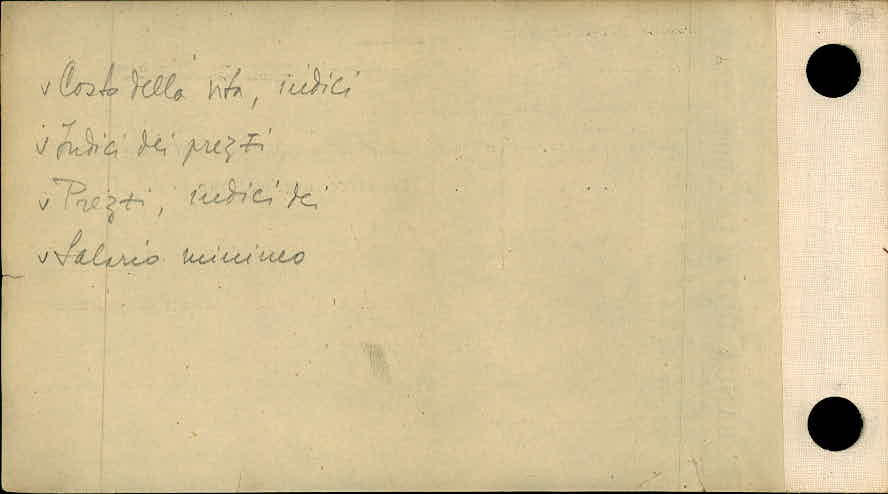 v Costo della vita, indici
v Indici dei prezzi
v Prezzi, indici dei
v Salario minimo